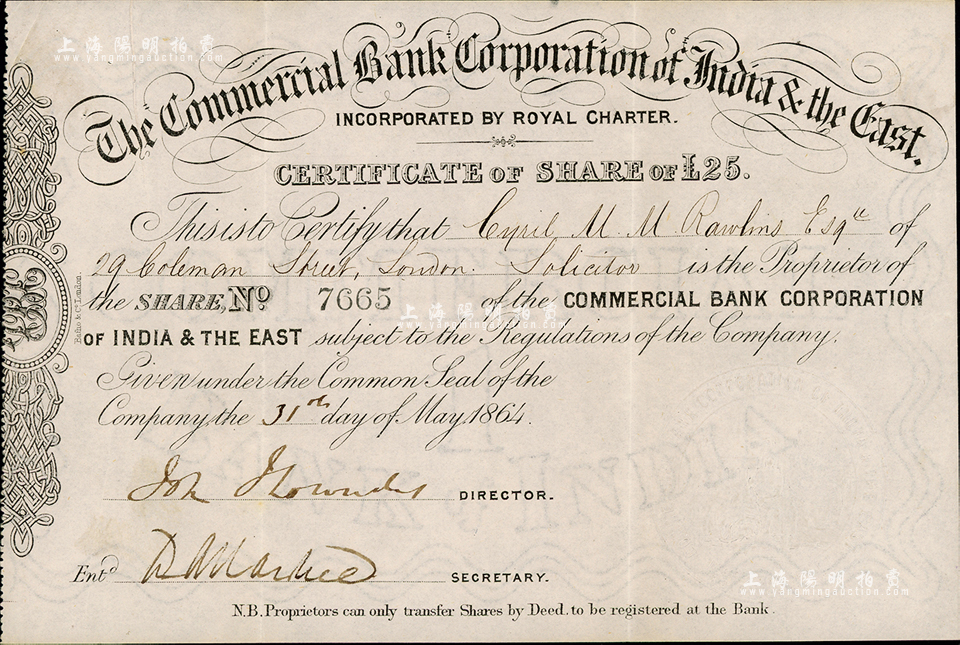 上海陽明拍賣
www.yangmingauction.com
The Commercial Bank Corporation of India & the East.
INCORPORATED BY ROYAL CHARTER.
CERTIFICATE OF SHARE OF £25.
This is to Certify that Cyril M. M. Rawlins Esqre of
29 Coleman Street, London. Solicitor is the Proprietor of
the SHARE, No. 7665 of the COMMERCIAL BANK CORPORATION
OF INDIA & THE EAST subject to the Regulations of the Company.
上海陽明拍賣
www.yangmingauction.com
Given under the Common Seal of the
Company, the 31st day of May 1864.
DIRECTOR.
Entd. SECRETARY.
上海陽明拍賣
www.yangmingauction.com
N.B. Proprietors can only transfer Shares by Deed, to be registered at the Bank.